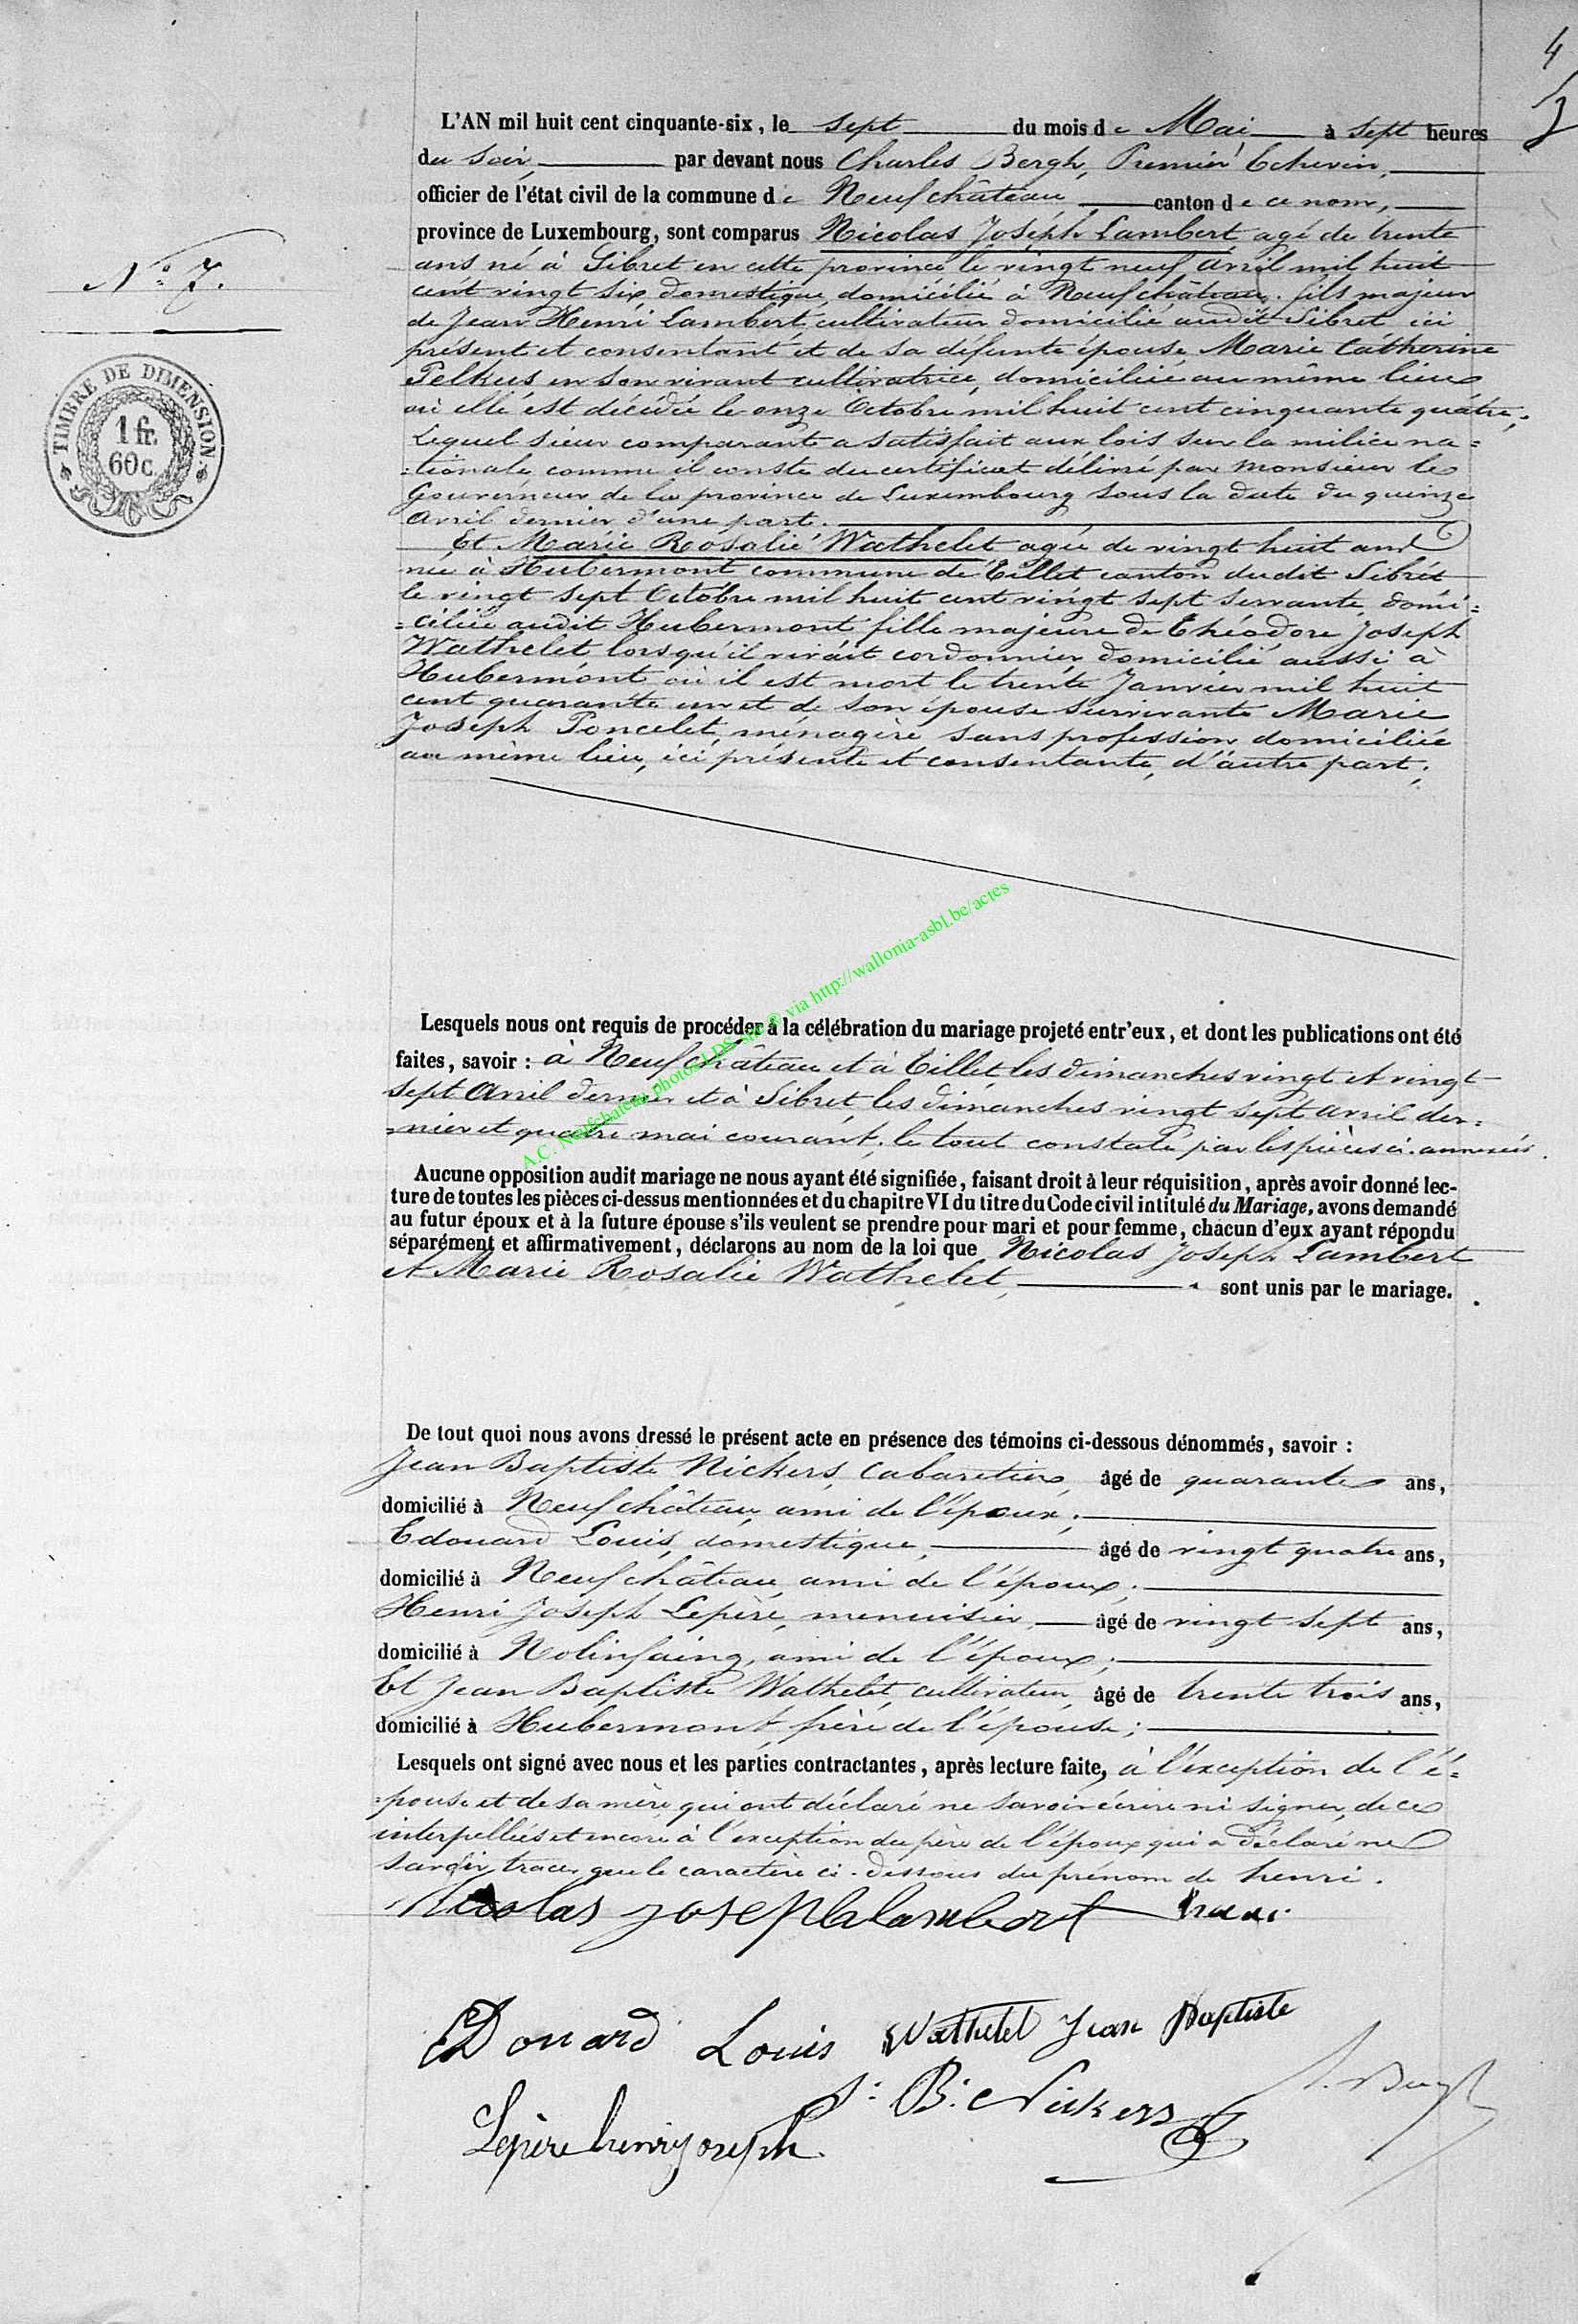 4
3
L'AN mil huit cent cinquante-six, le sept du mois de Mai à sept heures
du soir, par devant nous Charles Bergh, Premier Echevin,
officier de l'état civil de la commune de Neufchâteau, canton de ce nom,
province de Luxembourg, sont comparus Nicolas Joseph Lambert agé de trente
ans né à Sibret en cette province le vingt neuf avril mil huit
cent vingt six domestique, domicilié à Neufchâteau, fils majeur
de Jean Henri Lambert, cultivateur domicilié audit Sibret ici
présent et consentant et de sa défunte épouse Marie Catherine
Pelkus en son vivant cultivatrice, domiciliée au même lieu
où elle est décédée le onze Octobre mil huit cent cinquante quatre;
Lequel sieur comparant a satisfait aux lois sur la milice na=
=tionale, comme il conste du certificat délivré par Monsieur le
Gouverneur de la province de Luxembourg sous la date du quinze
avril dernier d'une part.
Et Marie Rosalie Wathelet agée de vingt huit ans
née à Hubermont commune de Tillet canton dudit Sibret
le vingt sept Octobre mil huit cent vingt sept servante, domi=
=ciliée audit Hubermont fille majeure de Théodore Joseph
Wathelet, lorsqu'il vivait cordonnier domicilié aussi à
Hubermont où il est mort le trente Janvier mil huit
cent quarante un et de son épouse survivante Marie
Joseph Poncelet, ménagère sans profession domiciliée
au même lieu, ici présente et consentante, d'autre part;
N° 7.
TIMBRE DE DIMENSION
1 fr.
60 c.
Lesquels nous ont requis de procéder à la célébration du mariage projeté entr'eux, et dont les publications ont été
faites, savoir : à Neufchâteau et à Tillet les dimanches vingt et vingt
sept Avril dernier et à Sibret, les dimanches vingt sept avril der=
=nier et quatre mai courant; le tout constaté par les pièces ci-annexées.
A.C. Neufchateau photos LDS site ® via http://wallonia-asbl.be/actes
Aucune opposition audit mariage ne nous ayant été signifiée, faisant droit à leur réquisition, après avoir donné lec-
ture de toutes les pièces ci-dessus mentionnées et du chapitre VI du titre du Code civil intitulé du Mariage, avons demandé
au futur époux et à la future épouse s'ils veulent se prendre pour mari et pour femme, chacun d'eux ayant répondu
séparément et affirmativement, déclarons au nom de la loi que Nicolas Joseph Lambert
et Marie Rosalie Wathelet, sont unis par le mariage.
De tout quoi nous avons dressé le présent acte en présence des témoins ci-dessous dénommés, savoir :
Jean Baptiste Nickers, Cabaretier, âgé de quarante ans,
domicilié à Neufchâteau, ami de l'époux;
Edouard Louis, domestique, âgé de vingt quatre ans,
domicilié à Neufchâteau, ami de l'époux;
Henri Joseph Lepère, menuisier, âgé de vingt sept ans,
domicilié à Nolinfaing, ami de l'époux;
Et Jean Baptiste Wathelet, cultivateur, âgé de trente trois ans,
domicilié à Hubermont, frère de l'épouse;
Lesquels ont signé avec nous et les parties contractantes, après lecture faite, à l'exception de l'é=
=pouse et de sa mère qui ont déclaré ne savoir écrire ni signer, de ce
interpellées et encore à l'exception du père de l'époux qui a déclaré ne
savoir tracer que le caractère ci-dessous du prénom de henri.
Nicolas joseph lambert henri
Edouard Louis Wathelet Jean Baptiste
J: B: Nickers
Lepère henri joseph